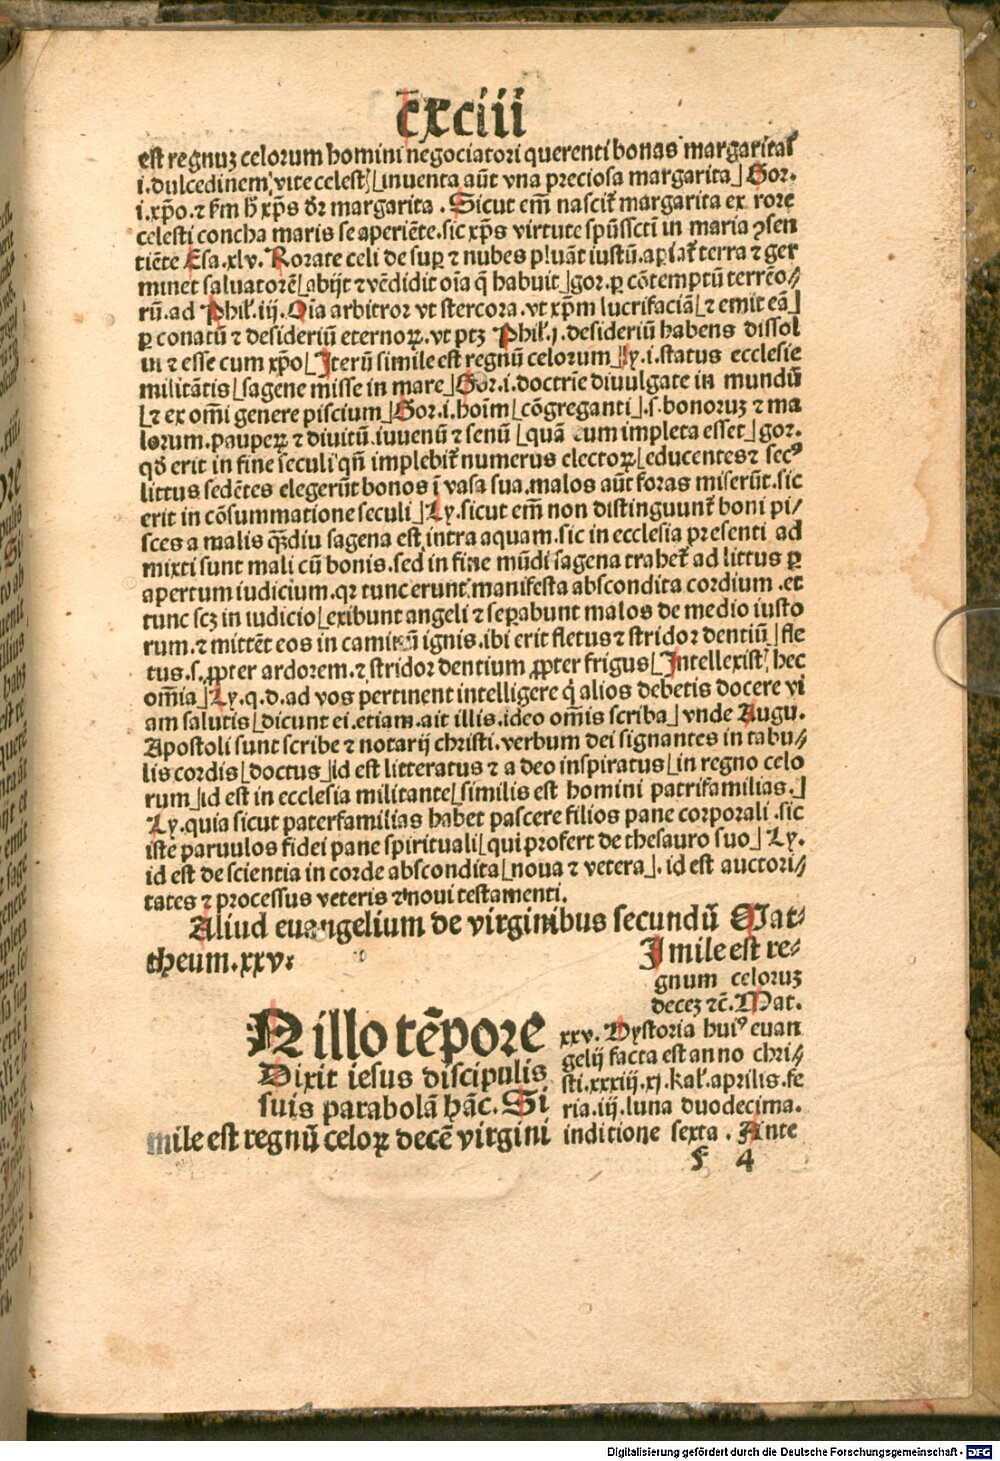 cxciii
est regnuȝ celorum homini negociatori querenti bonas margaritas
i. dulcedinem vite celest⌊inuenta aūt vna preciosa margarita⌋Gor.
i. xp̄o. ⁊ ẜm h̄ xp̄s dr̄ margarita. Sicut em̄ nascit̄ margarita ex rore
celesti concha maris se aperiēte. sic xp̄s virtute spūsscti in maria ꝯsen
tiēte Esa. xlv. Rorate celi desuꝑ ⁊ nubes pluāt iustū. aꝑiat̄ terra ⁊ ger
minet saluatorē⌊abijt ⁊ vēdidit oīa q̄ habuit⌋gor. ꝑ cōtemptū terrēo⸗
rū. ad Phil̄. iij. Oīa arbitror vt stercora. vt xp̄m lucrifaciā⌊⁊ emit eā⌋
ꝑ conatū ⁊ desideriū eternoꝝ. vt ptȝ Phil̄. j. desideriū habens dissol
ui ⁊ esse cum xp̄o⌊Iterū simile est regnū celorum⌋ly. i. status ecclesie
militātis⌊sagene misse in mare⌋Gor. i. doctrīe diuulgate in mundū
⌊⁊ ex om̄i genere piscium⌋Gor. i. hoīm⌊cōgreganti⌋. s. bonoruȝ ⁊ ma
lorum. pauperꝝ ⁊ diuitū. iuuenū ⁊ senū⌊quā cum impleta esset⌋gor.
qd̄ erit in fine seculi qn̄ implebit̄ numerus electoꝝ⌊educentes ⁊ secꝰ
littus sedētes elegerūt bonos ī vasa sua. malos aūt foras miserūt. sic
erit in cōsummatione seculi⌋Ly. sicut em̄ non distinguunt̄ boni pi⸗
sces a malis q̄ȝdiu sagena est intra aquam. sic in ecclesia presenti ad
mixti sunt mali cū bonis. sed in fine mūdi sagena trahet̄ ad littus ꝑ
apertum iudicium. qꝛ tunc erunt manifesta abscondita cordium. et
tunc scȝ in iudicio⌊exibunt angeli ⁊ seꝑabunt malos de medio iusto
rum. ⁊ mittēt eos in caminū ignis. ibi erit fletus ⁊ stridor dentiū⌋fle
tus. s. ꝓpter ardorem. ⁊ stridor dentium ꝓpter frigus⌊Intellexist hec
om̄ia⌋Ly. q. d. ad vos pertinent intelligere q̇ alios debetis docere vi
am salutis⌊dicunt ei. etiam. ait illis. ideo om̄is scriba⌋vnde Augu.
Apostoli sunt scribe ⁊ notarij christi. verbum dei signantes in tabu⸗
lis cordis⌊doctus⌋id est litteratus ⁊ a deo inspiratus⌊in regno celo
rum⌋id est in ecclesia militante⌊similis est homini patrifamilias.⌋
Ly. quia sicut paterfamilias habet pascere filios pane corporali. sic
iste paruulos fidei pane spirituali⌊qui profert de thesauro suo⌋Ly.
id est de scientia in corde abscondita⌊noua ⁊ vetera⌋. id est auctori⸗
tates ⁊ processus veteris ⁊ noui testamenti.
Aliud euangelium de virginibus secundū Mat⸗
theum. xxv.
Imile est re⸗
gnum celoruȝ
deceȝ ⁊c̄. Mat.
xxv. Hystoria huiꝰ euan
gelij facta est anno chri⸗
sti. xxxiij. xj. kal̄. aprilis. fe
ria. iij. luna duodecima.
inditione sexta. Ante
N illo tēpore
Dixit iesus discipulis
suis parabolā hāc. Si
mile est regnū celoꝝ decē virgini
f 4
Digitalisierung gefördert durch die Deutsche Forschungsgemeinschaft - DFG